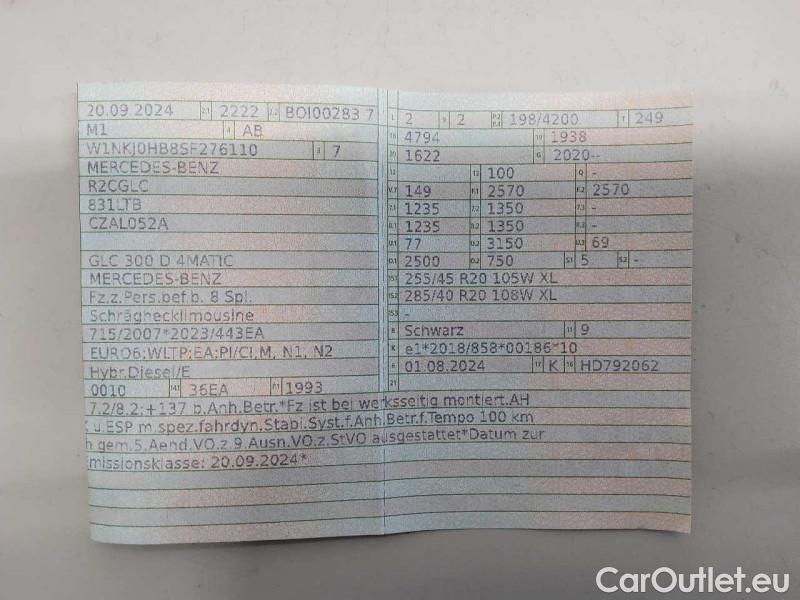 20.09.2024 2.1 2222 2.2 BOI00283 7
M1 4 AB
W1NKJ0HB8SF276110 3 7
MERCEDES-BENZ
R2CGLC
831LTB
CZAL052A
GLC 300 D 4MATIC
MERCEDES-BENZ
Fz.z.Pers.bef b. 8 Spl.
Schräghecklimousine
715/2007*2023/443EA
EURO6;WLTP;EA;PI/CI,M, N1, N2
Hybr.Diesel/E
0010 14.1 36EA P.1 1993
L 2 9 2 P.2 P.4 198/4200 T 249
18 4794 19 1938
20 1622 G 2020--
12 13 100 Q -
V.7 149 F.1 2570 F.2 2570
7.1 1235 7.2 1350 7.3 -
8.1 1235 8.2 1350 8.3 -
U.1 77 U.2 3150 U.3 69
O.1 2500 O.2 750 S.1 5 S.2 -
15.1 255/45 R20 105W XL
15.2 285/40 R20 108W XL
15.3 -
R Schwarz 11 9
K e1*2018/858*00186*10
6 01.08.2024 17 K 16 HD792062
21
7.2/8.2:+137 b.Anh.Betr.*Fz ist bei werksseitig montiert.AH
u.ESP m.spez.fahrdyn.Stabi.Syst.f.Anh.Betr.f.Tempo 100 km
h gem.5.Aend.VO.z.9.Ausn.VO.z.StVO ausgestattet*Datum zur
missionsklasse: 20.09.2024*
CarOutlet.eu